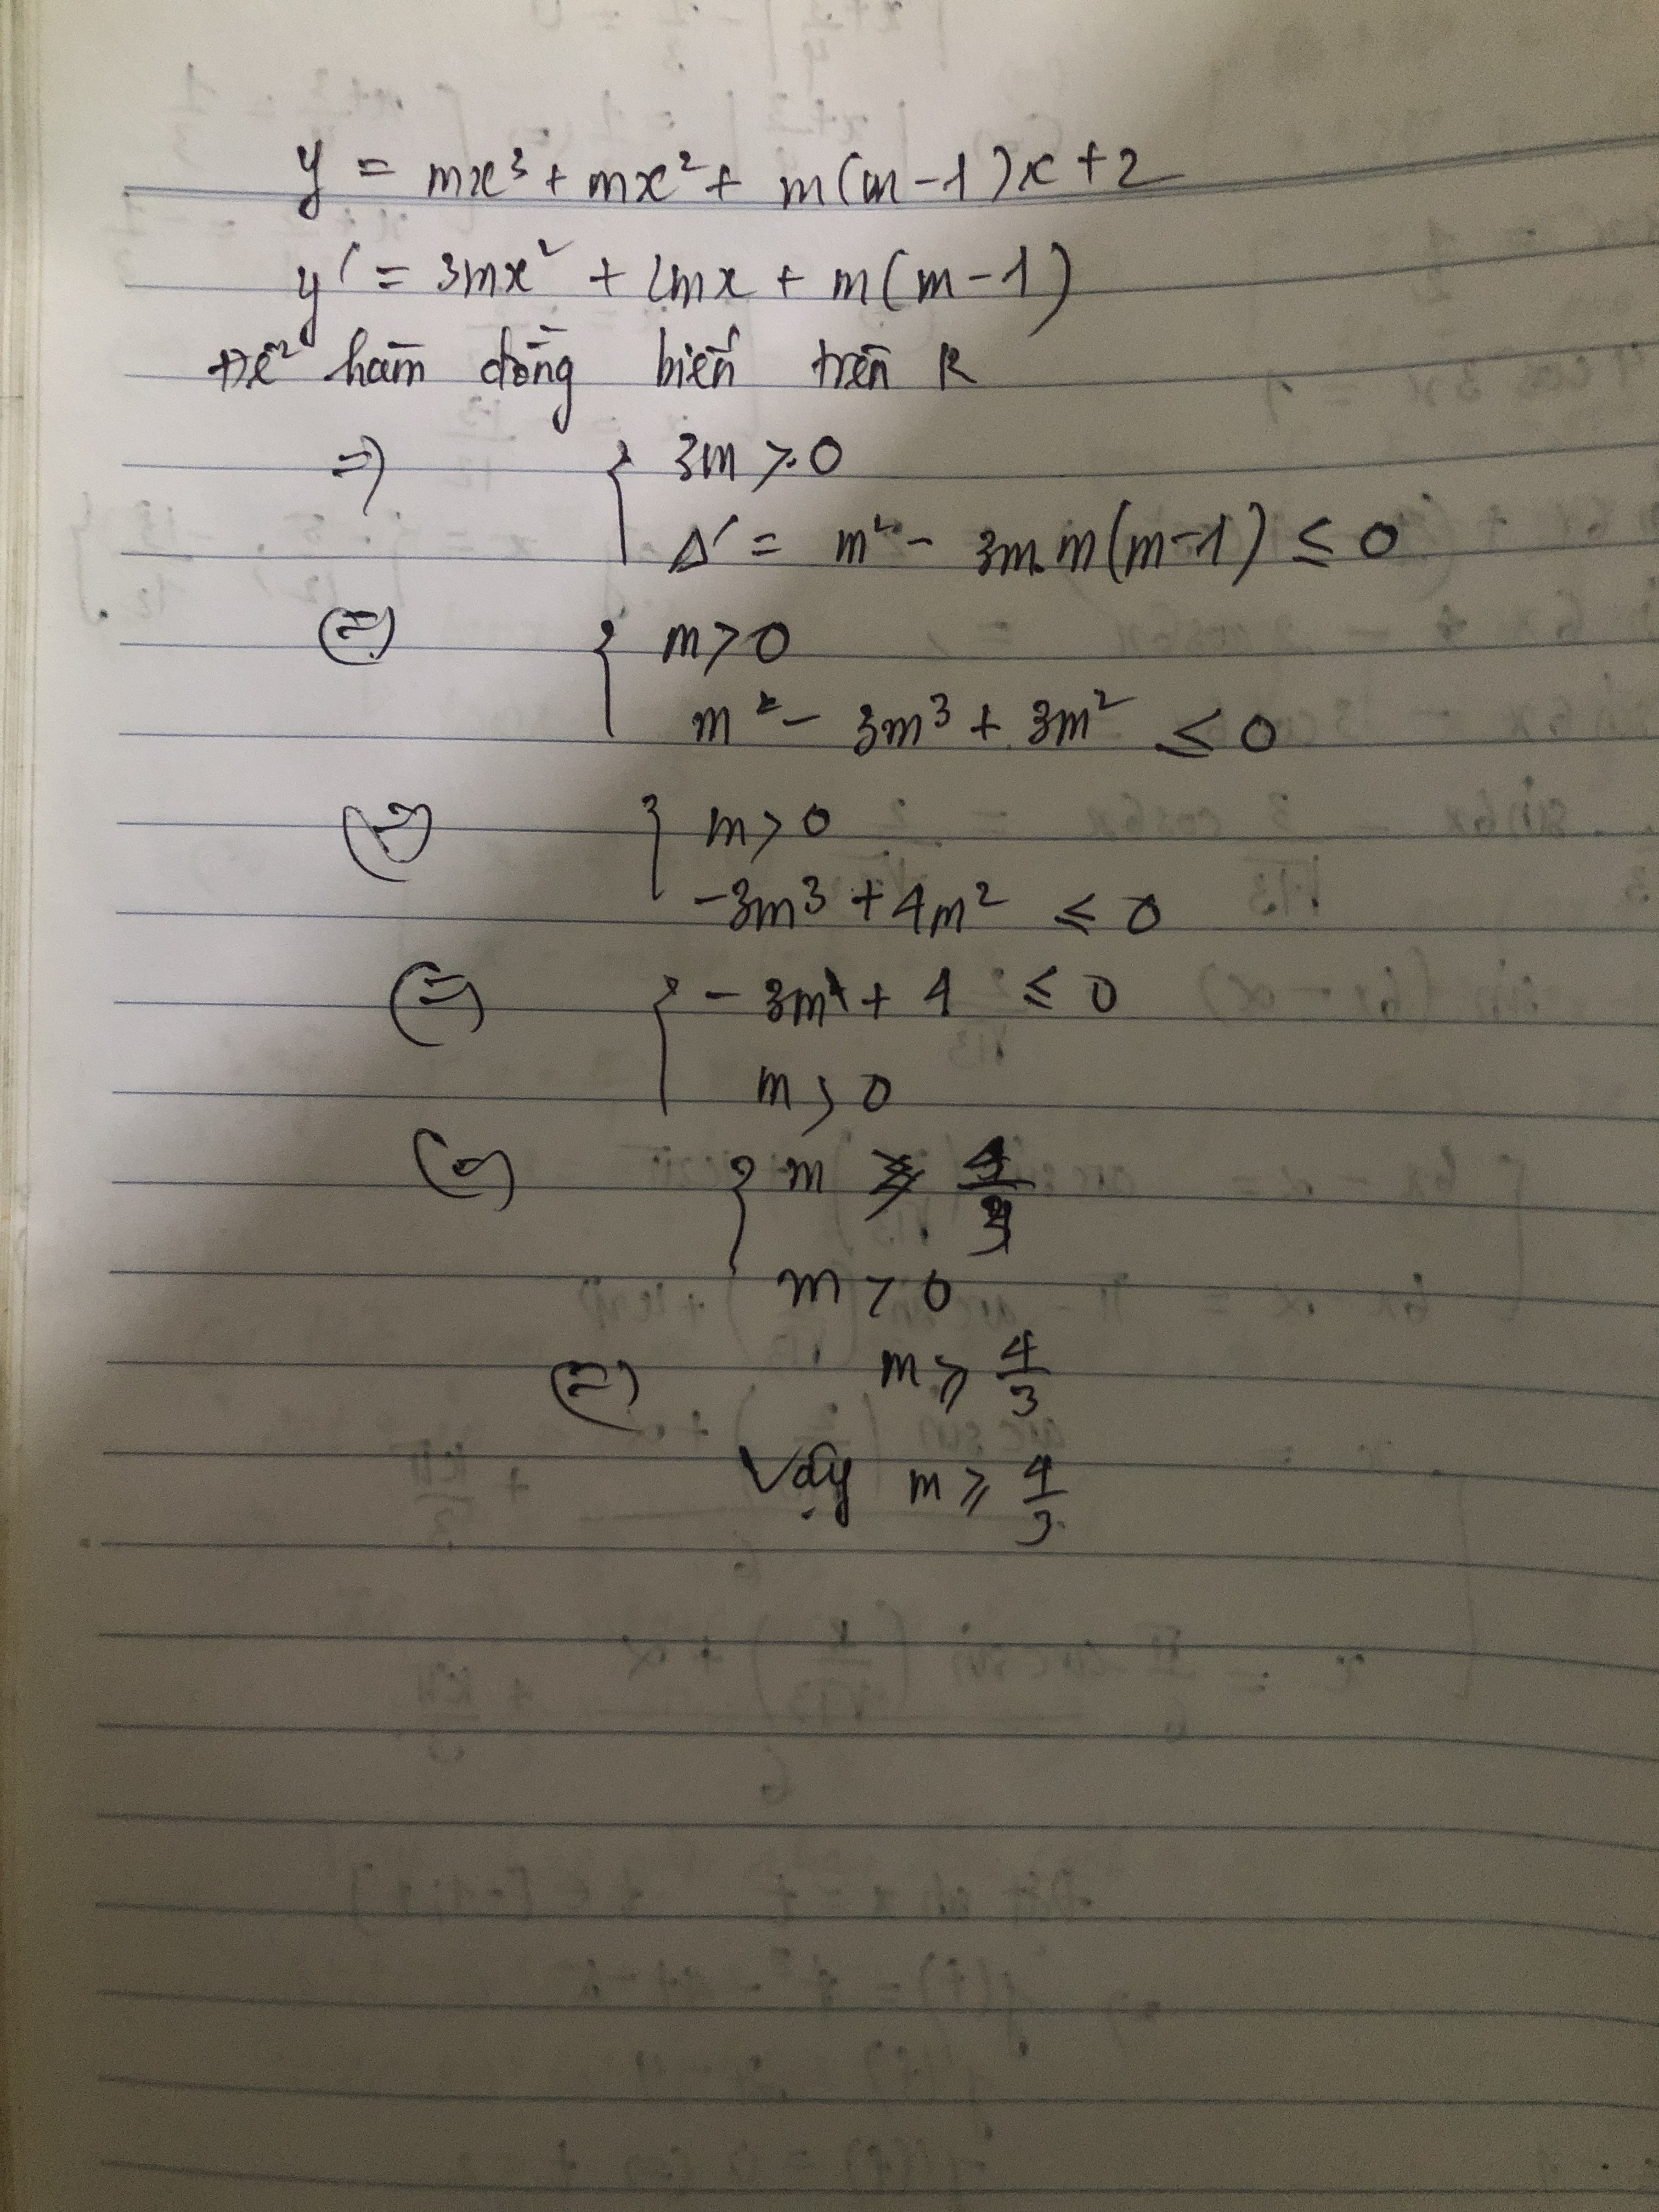 y = mx³ + mx² + m(m-1)x + 2
y' = 3mx² + 2mx + m(m-1)
Để hàm đồng biến trên R
=> { 3m > 0
Δ' = m² - 3m.m(m-1) ≤ 0
(=) { m > 0
m² - 3m³ + 3m² ≤ 0
(=) { m > 0
-3m³ + 4m² ≤ 0
(=) { -3m + 4 ≤ 0
m > 0
(=) { m ≥ 4/3
m > 0
(=) m ≥ 4/3
Vậy m ≥ 4/3